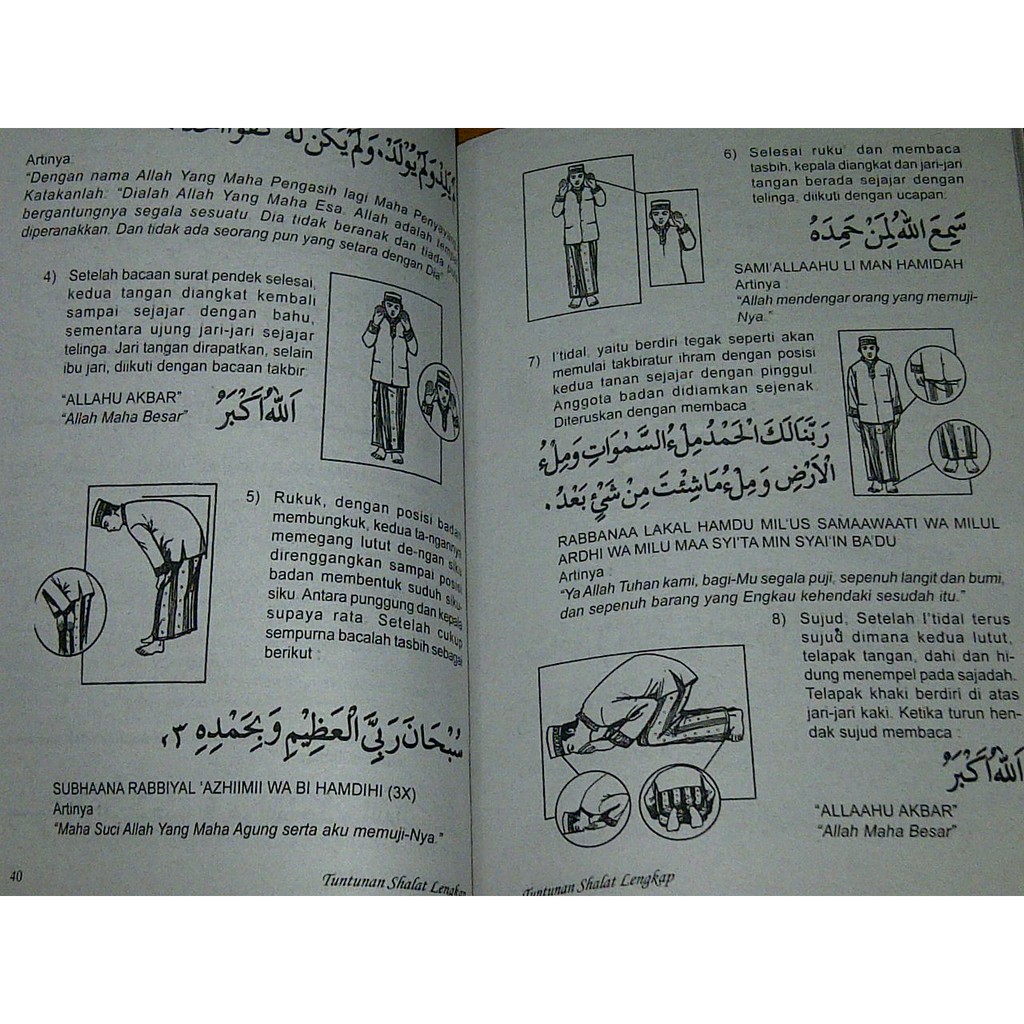 يَلِدْ وَلَمْ يُوْلَدْ. وَلَمْ يَكُنْ لَهُ
Artinya:
“Dengan nama Allah Yang Maha Pengasih lagi Maha
Katakanlah: “Dialah Allah Yang Maha Esa. Allah adalah
bergantungnya segala sesuatu. Dia tidak beranak dan tiada
diperanakkan. Dan tidak ada seorang pun yang setara dengan Dia”
4) Setelah bacaan surat pendek selesai,
kedua tangan diangkat kembali
sampai sejajar dengan bahu,
sementara ujung jari-jari sejajar
telinga. Jari tangan dirapatkan, selain
ibu jari, diikuti dengan bacaan takbir.
“ALLAHU AKBAR”
“Allah Maha Besar”
اَللّٰهُ اَكْبَرُ
5) Rukuk, dengan posisi badan
membungkuk, kedua ta-ngannya
memegang lutut de-ngan siku
direnggangkan sampai posisi
badan membentuk suduh siku-
siku. Antara punggung dan kepala
supaya rata. Setelah cukup
sempurna bacalah tasbih sebagai
berikut :
سُبْحَانَ رَبِّيَ الْعَظِيْمِ وَبِحَمْدِهِ ٣×
SUBHAANA RABBIYAL 'AZHIIMII WA BI HAMDIHI (3X)
Artinya :
“Maha Suci Allah Yang Maha Agung serta aku memuji-Nya.”
40
Tuntunan Shalat Lengkap
6) Selesai ruku' dan membaca
tasbih, kepala diangkat dan jari-jari
tangan berada sejajar dengan
telinga, diikuti dengan ucapan:
سَمِعَ اللّٰهُ لِمَنْ حَمِدَهُ
SAMI'ALLAAHU LI MAN HAMIDAH
Artinya :
“Allah mendengar orang yang memuji-
Nya.”
7) I'tidal, yaitu berdiri tegak seperti akan
memulai takbiratur ihram dengan posisi
kedua tanan sejajar dengan pinggul.
Anggota badan didiamkan sejenak.
Diteruskan dengan membaca :
رَبَّنَا لَكَ الْحَمْدُ مِلْءُ السَّمٰوَاتِ وَمِلْءُ
الْاَرْضِ وَمِلْءُ مَا شِئْتَ مِنْ شَيْءٍ بَعْدُ.
RABBANAA LAKAL HAMDU MIL'US SAMAAWAATI WA MILUL
ARDHI WA MILU MAA SYI'TA MIN SYAI'IN BA'DU
Artinya :
“Ya Allah Tuhan kami, bagi-Mu segala puji, sepenuh langit dan bumi,
dan sepenuh barang yang Engkau kehendaki sesudah itu.”
8) Sujud, Setelah I'tidal terus
sujud dimana kedua lutut,
telapak tangan, dahi dan hi-
dung menempel pada sajadah.
Telapak khaki berdiri di atas
jari-jari kaki. Ketika turun hen-
dak sujud membaca :
اَللّٰهُ اَكْبَرُ
“ALLAAHU AKBAR”
“Allah Maha Besar”
Tuntunan Shalat Lengkap